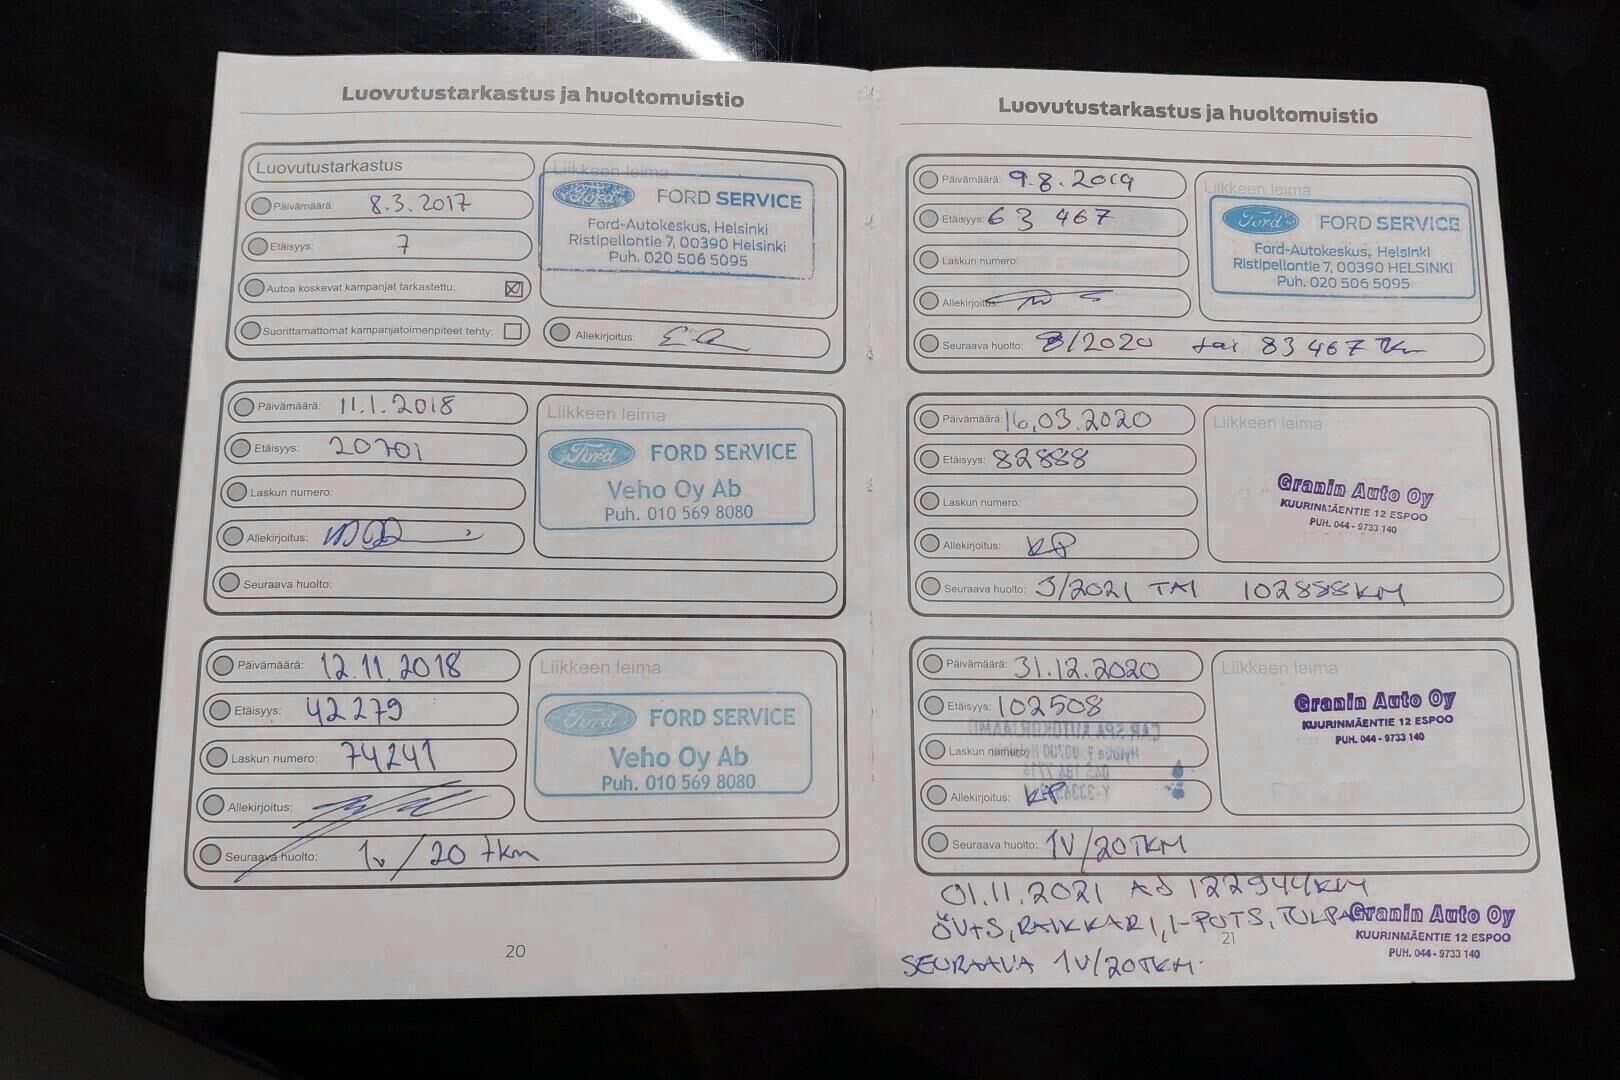 Luovutustarkastus ja huoltomuistio
Luovutustarkastus
Päivämäärä: 8.3.2017
Etäisyys: 7
Autoa koskevat kampanjat tarkastettu:
Suorittamattomat kampanjatoimenpiteet tehty:
Liikkeen leima
Ford FORD SERVICE
Ford-Autokeskus, Helsinki
Ristipellontie 7, 00390 Helsinki
Puh. 020 506 5095
Allekirjoitus:
Päivämäärä: 11.1.2018
Etäisyys: 20701
Laskun numero:
Allekirjoitus:
Seuraava huolto:
Liikkeen leima
Ford FORD SERVICE
Veho Oy Ab
Puh. 010 569 8080
Päivämäärä: 12.11.2018
Etäisyys: 42279
Laskun numero: 74241
Allekirjoitus:
Seuraava huolto: 1v/20 tkm
Liikkeen leima
Ford FORD SERVICE
Veho Oy Ab
Puh. 010 569 8080
20
Luovutustarkastus ja huoltomuistio
Päivämäärä: 9.8.2019
Etäisyys: 63 467
Laskun numero:
Allekirjoitus:
Seuraava huolto: 8/2020 tai 83 467 Tkm
Liikkeen leima
Ford FORD SERVICE
Ford-Autokeskus, Helsinki
Ristipellontie 7, 00390 HELSINKI
Puh. 020 506 5095
Päivämäärä: 16.03.2020
Etäisyys: 82888
Laskun numero:
Allekirjoitus: KP
Seuraava huolto: 3/2021 TAI 102888KM
Liikkeen leima
Granin Auto Oy
KUURINMÄENTIE 12 ESPOO
PUH. 044 - 9733 140
Päivämäärä: 31.12.2020
Etäisyys: 102508
Laskun numero:
Allekirjoitus: KP
Seuraava huolto: 1V/20TKM
Liikkeen leima
Granin Auto Oy
KUURINMÄENTIE 12 ESPOO
PUH. 044 - 9733 140
01.11.2021 AJ 122944KM
ÖV+S, RAIKKARI, I-PUTS, TULPAT
SEURAAVA 1V/20TKM.
Granin Auto Oy
KUURINMÄENTIE 12 ESPOO
PUH. 044 - 9733 140
21